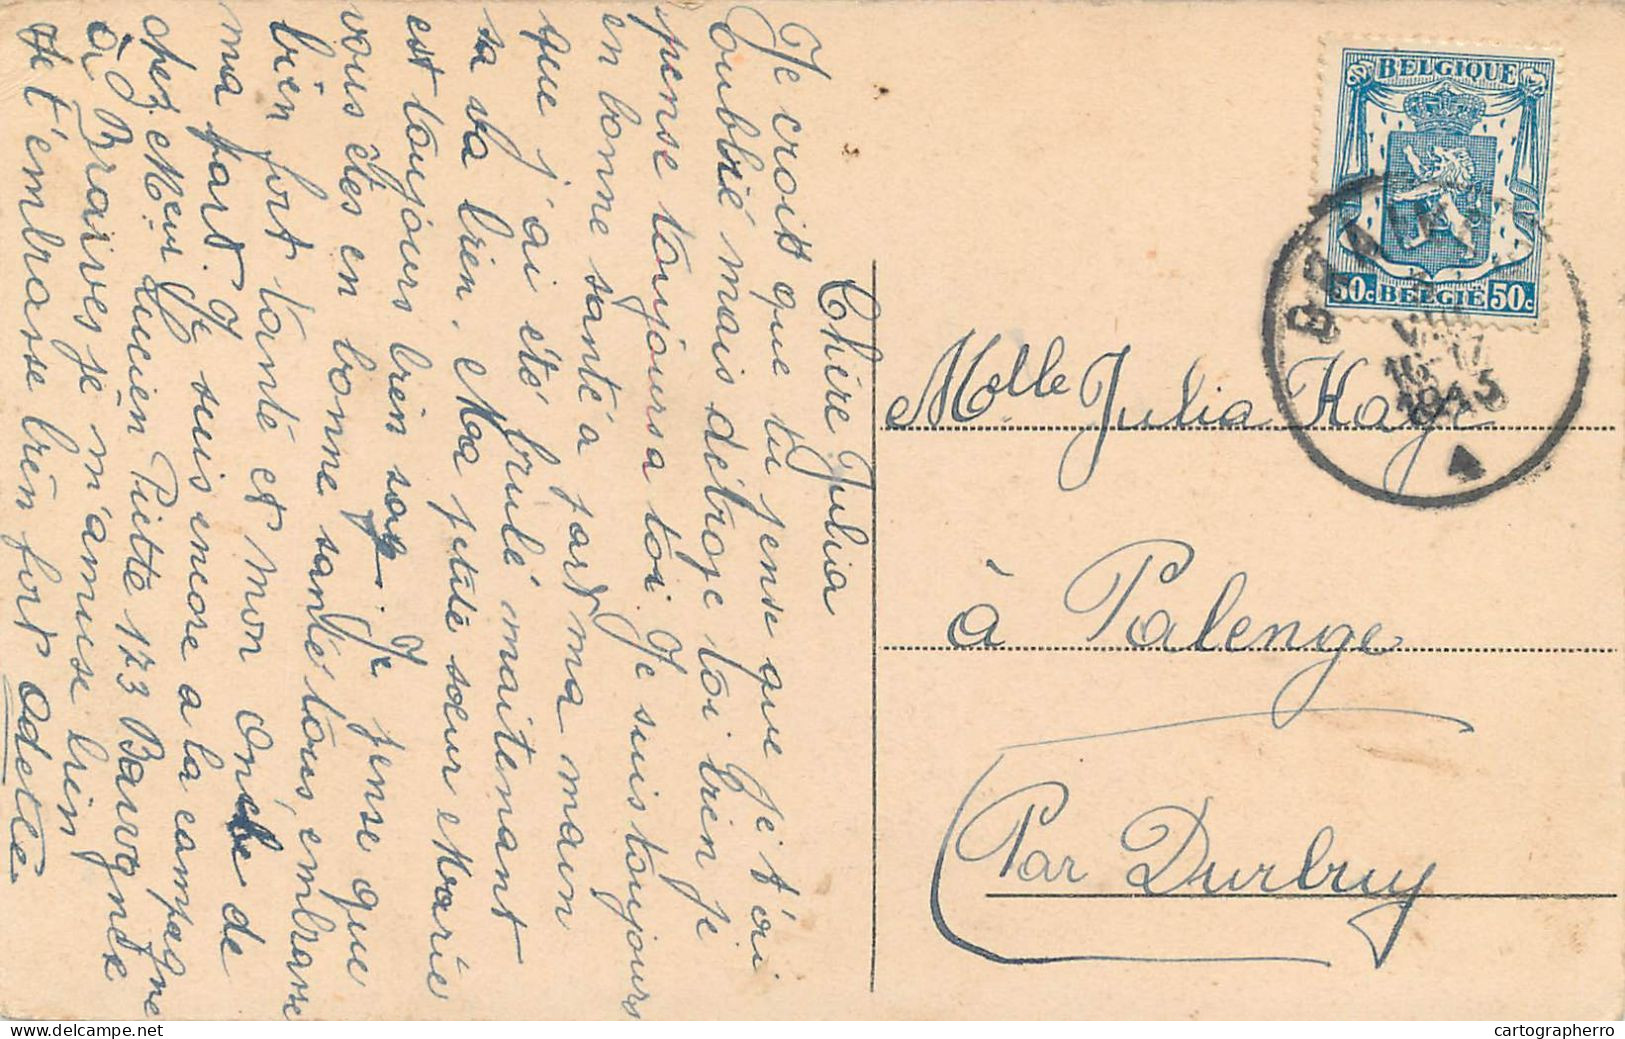 Chère Julia
Je croit que tu pense que je t'ai
oubbié mais détrope toi bien je
pense toujours a toi. Je suis toujours
en bonne santé a part ma main
que j'ai été brulé maitenant
sa va bien. Ma petite sœur Marie
est toujours bien sag. Je pense que
vous êtes en bonne santé tous, embrasse
bien fort tante et mon oncle de
ma part. Je suis encore a la campagne
chez Meur Lucien Piette 173
à Braives je m'amuse bien
Je t'embrasse bien fort Odette.
BELGIQUE
50c BELGIE 50c
Melle Julia
à Palenge
Par Durbuy
cartographerro